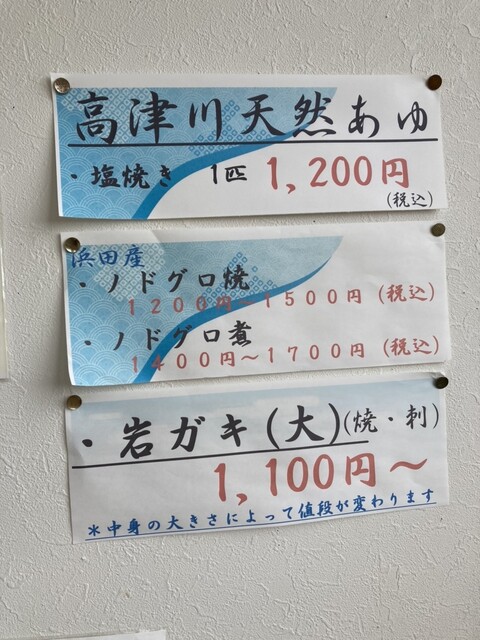 高津川天然あゆ
・塩焼き 1匹 1,200円
(税込)
浜田産
・ノドグロ焼
1200円～1500円(税込)
・ノドグロ煮
1400円～1700円(税込)
・岩ガキ(大)(焼・刺)
1,100円～
＊中身の大きさによって値段が変わります